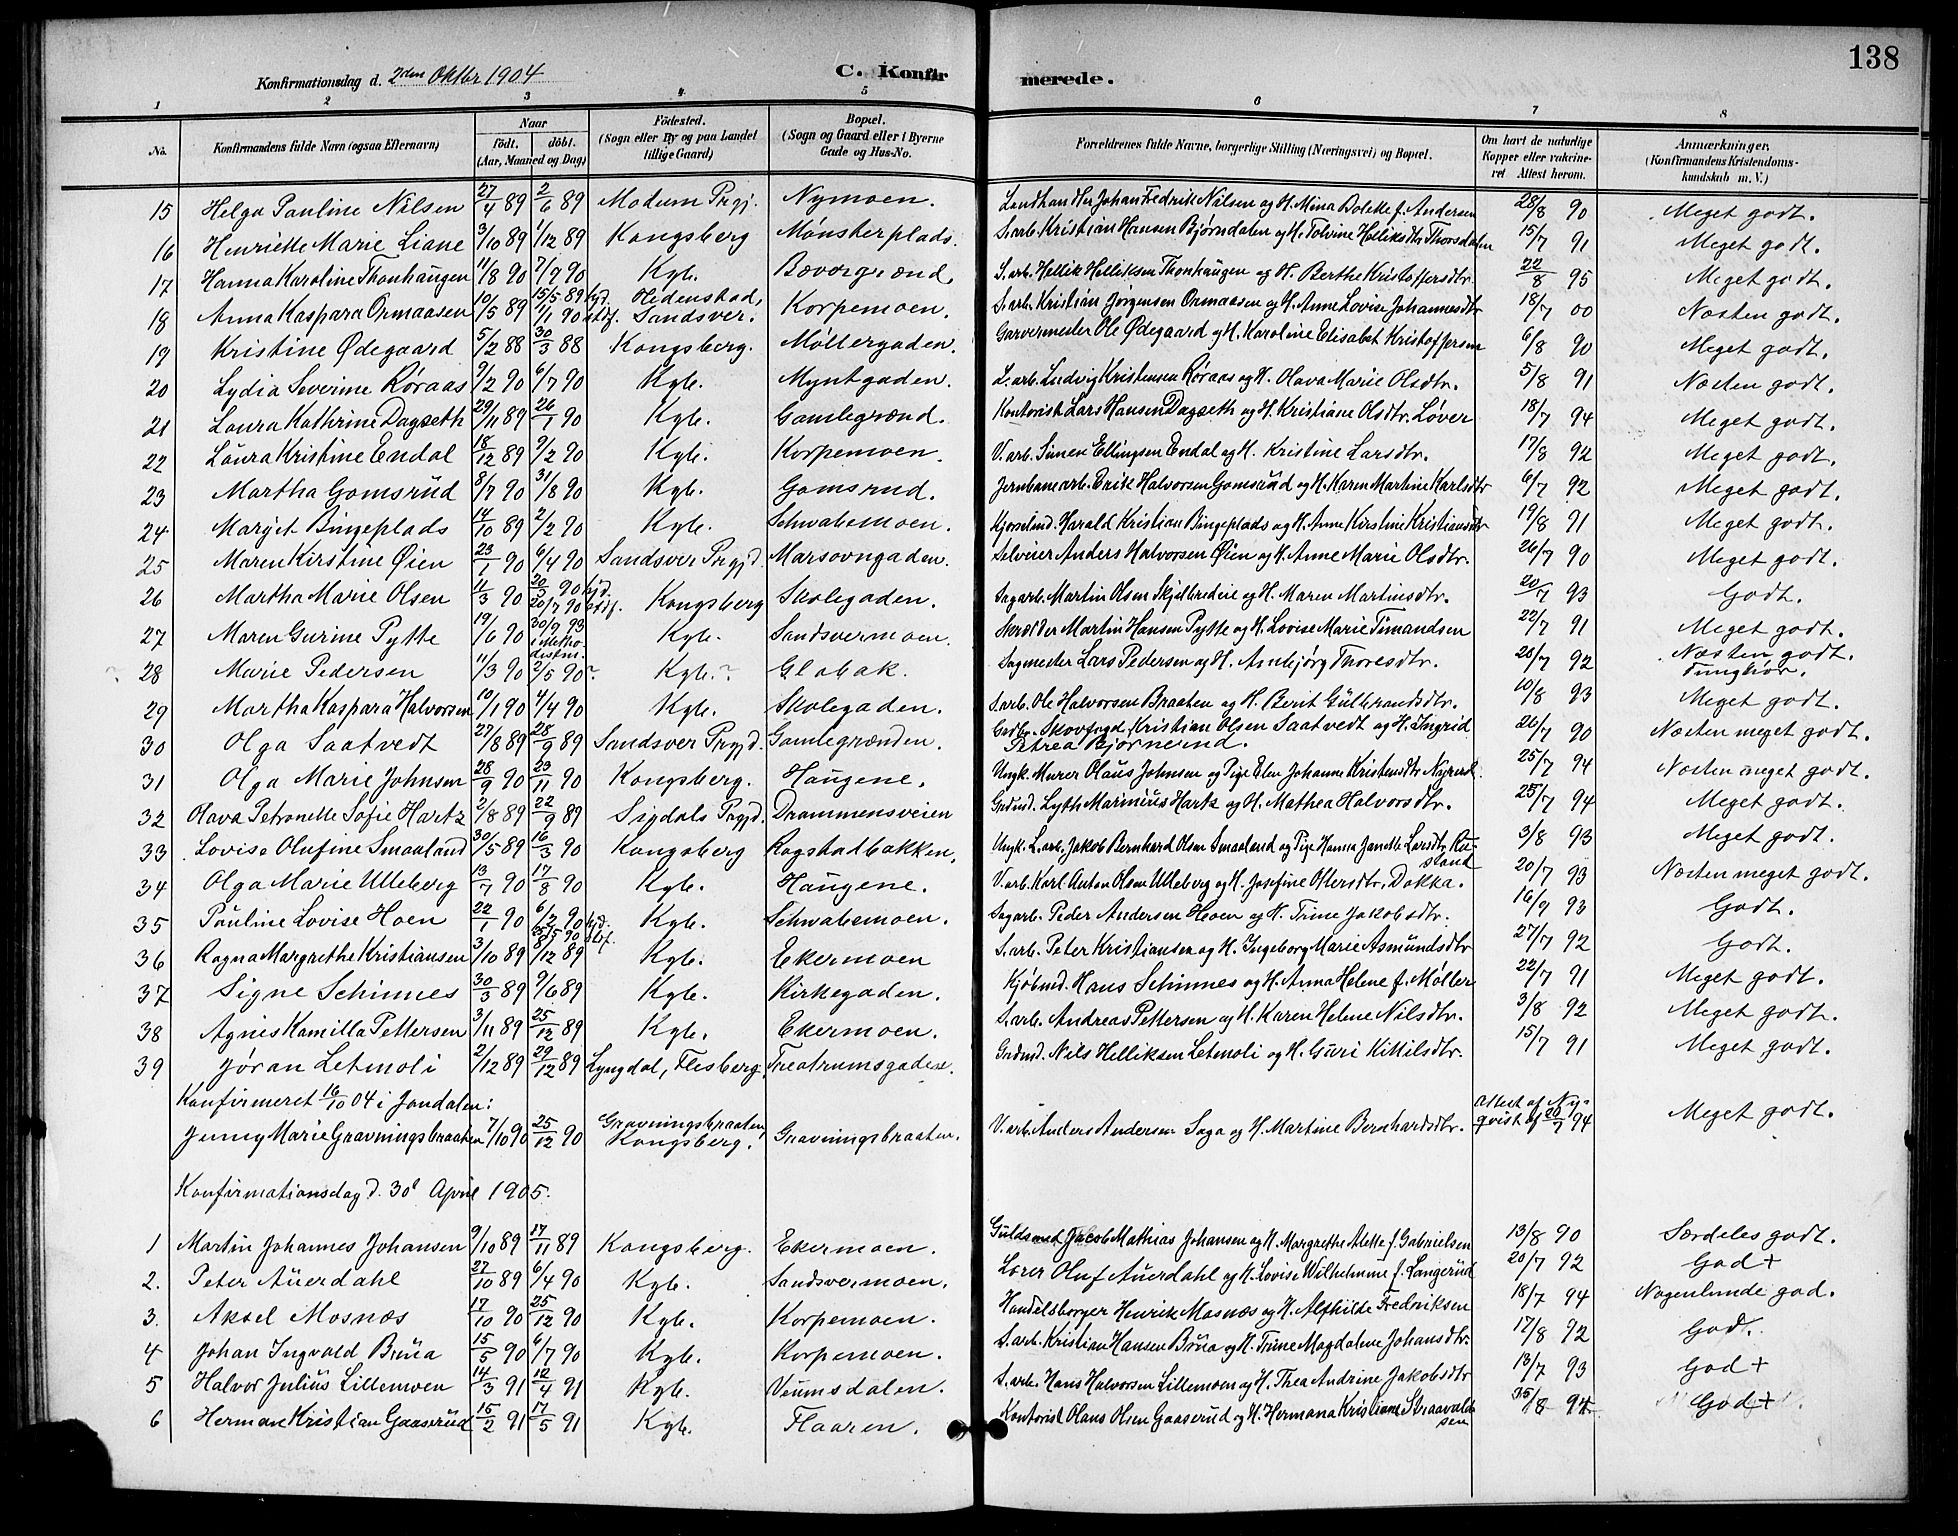 138
Konfirmationsdag d. 2den Oktbr 1904 C. Konfirmerede.
1 2 3 4 5 6 7 8
No. Konfirmandens fulde Navn (ogsaa Efternavn) Naar födt. döbt. (Aar, Maaned og Dag) Födested. (Sogn eller By og paa Landet tillige Gaard) Bopæl. (Sogn og Gaard eller i Byerne Gade og Hus-No. Forældrenes fulde Navne, borgerlige Stilling (Næringsvei) og Bopæl. Om havt de naturlige Kopper eller vakcineret Attest herom. Anmærkninger. (Konfirmandens Kristendomskundskab m. V.)
15 Helga Pauline Nilsen 27/4 89 2/6 89 Modum Prgj. Nymoen. Landhan Johan Fredrik Nilsen og H. Mina Bolette f. Andersen 28/8 90 Meget godt.
16 Henriette Marie Liane 3/10 89 1/12 89 Kongsberg Mønsterplads. S.arb. Kristian Hansen Bjørndalen og H. Tolvine Helliksdtr Thorsdalen 15/7 91 Meget godt.
17 Hanna Karoline Thonhaugen 11/8 90 7/9 90 Kgb. Bævergrænd. S.arb. Hellik Helliksen Thonhaugen og H. Berthe Kristoffersdtr. 22/8 95 Meget godt.
18 Anna Kaspara Ormaasen 10/5 89 15/5 89 hjd. 1/1 90 stdf. Hedenstad, Sandsver. Korpemoen. S.arb. Kristian Jørgensen Ormaasen og H. Anne Lovise Johannesdtr 18/7 00 Næsten godt.
19 Kristine Ødegaard 5/2 88 30/3 88 Kongsberg. Møllergaden. Garvermester Ole Ødegaard og H. Karoline Elisabet Kristoffersen 6/8 90 Meget godt.
20 Lydia Severine Røraas 9/2 90 6/7 90 Kgb. Myntgaden. L.arb. Ludvig Kristensen Røraas og H. Olava Marie Olsdtr. 5/8 91 Næsten godt.
21 Laura Kathrine Dagseth 29/11 89 26/1 90 Kgb. Gamlegrænd. Kontorist Lars Hansen Dagseth og H. Kristiane Olsdtr. Løver 18/7 94 Meget godt.
22 Laura Kristine Endal 18/12 89 9/2 90 Kgb. Korpemoen. V.arb. Simen Ellingsen Endal og H. Kristine Larsdtr. 17/8 92 Meget godt.
23 Martha Gomsrud 8/7 90 31/8 90 Kgb. Gomsrud. Jernbanearb. Erik Halvorsen Gomsrud og H. Karen Martine Karlsdtr 6/7 92 Meget godt.
24 Margit Bingeplads 14/10 89 2/2 90 Kgb. Schwabemoen. Kjørselmd. Harald Kristian Bingeplads og H. Anne Kirstine Kristiansdtr 19/8 91 Meget godt.
25 Maren Kirstine Øien 23/1 90 6/4 90 Sandsver Prgjd. Marsovngaden. Selveier Anders Halvorsen Øien og H. Anne Marie Olsdtr. 26/7 90 Meget godt.
26 Martha Marie Olsen 11/3 90 20/3 90 hjd. 20/7 90 stdf. Kongsberg Skolegaden. Sagarb. Martin Olsen Skjelbredeie og H. Maren Martinsdtr. 20/7 93 Godt.
27 Maren Gurine Pytte 19/6 90 30/9 93 i Methodistm. Kgb. Sandsvermoen. Skrædder Martin Hansen Pytte og H. Lovise Marie Timandsen 22/7 91 Meget godt.
28 Marie Pedersen 11/3 90 2/5 90? Kgb.? Glabak. Sagmester Lars Pedersen og H. Anebjørg Thoresdtr. 20/7 92 Næsten godt. Tunghør.
29 Martha Kaspara Halvorsen 10/1 90 4/4 90 Kgb. Skolegaden. S.arb. Ole Halvorsen Braaten og H. Berit Gulbrandsdtr. 10/8 93 Meget godt.
30 Olga Saatvedt 27/8 89 28/9 89 Sandsver Prgjd. Gamlegrænden. Gadbr. Skovfogd Kristian Olsen Saatvedt og H. Ingrid Petrea Bjørnerud. 26/7 90 Næsten meget godt.
31 Olga Marie Johnsen 28/9 90 23/11 90 Kongsberg. Haugene. Ungk. Murer Olaus Johnsen og Pige Elen Johanne Kristensdtr Nyrud 25/7 94 Næsten meget godt.
32 Olava Petronelle Sofie Hartz 2/8 89 22/9 89 Sigdals Prgjd. Drammensveien Grdmd. Lyth Marinius Hartz og H. Mathea Halvorsdtr. 25/7 94 Meget godt.
33 Lovise Olufine Smaalund 30/5 89 16/3 90 Kongsberg Ragstadbakken. Ungk. L.arb. Jakob Bernhard Olsen Smaalund og Pige Hanna Janette Larsdtr. Rustand 3/8 93 Meget godt.
34 Olga Marie Ulleberg 13/7 90 17/8 90 Kgb. Haugene. V.arb. Karl Anton Olsen Ulleberg og H. Josefine Olersdtr. Dokka. 20/7 93 Næsten meget godt.
35 Pauline Lovise Hoen 22/1 90 6/2 90 hjd. 25/5 90 stdf. Kgb. Schwabemoen. Sagarb. Peder Andersen Hoen og H. Trine Jakobsdtr. 16/9 93 Godt.
36 Ragna Margrethe Kristiansen 3/10 89 8/12 89 Kgb. Ekermoen S.arb. Peter Kristiansen og H. Ingeborg Marie Asmundsdtr 27/7 92 Godt.
37 Signe Schinnes 30/3 89 9/6 89 Kgb. Kirkegaden. Kjøbmd. Hans Schinnes og H. Anna Helene f. Møller 22/7 91 Meget godt.
38 Agnes Kamilla Pettersen 3/11 89 25/12 89 Kgb. Ekermoen. S.arb. Andreas Pettersen og H. Karen Helene Nilsdtr. 3/8 92 Meget godt.
39 Jøran Letmoli 2/12 89 29/12 89 Lyngdal, Flesberg Theatrumsgaden. Grdmd. Nils Helliksen Letmoli og H. Guri Kittilsdtr. 15/7 91 Meget godt.
Konfirmeret 16/10 04 i Jondalen:
Jenny Marie Gravningsbraaten 7/10 90 25/12 90 Gravningsbraaten, Kongsberg. Gravningsbraaten. V.arb. Anders Andersen Saga og H. Martine Bernhardsdtr. Attest af Nyqvist af 20/7 94 Meget godt.
Konfirmationsdag d. 30te April 1905.
1 Martin Johannes Johansen 9/10 89 17/11 89 Kongsberg. Ekermoen. Guldsmed Jacob Mathias Johansen og H. Margrethe Alette f. Gabrielsen 13/8 90 Særdeles godt.
2. Peter Auerdahl 27/10 89 6/4 90 Kgb. Sandsvermoen. Lærer Oluf Auerdahl og H. Lovise Wilhelmine f. Langerud 20/7 92 God +
3. Aksel Mosnæs 17/10 90 25/12 90 Kgb. Korpemoen. Handelsborger Henrik Mosnæs og H. Alfhilde Fredriksen 18/7 94 Nogenlunde god.
4 Johan Ingvald Brua 15/5 90 6/7 90 Kgb. Korpemoen. S.arb. Kristian Hansen Brua og H. Trine Magdalene Johansdtr. 17/8 92 God.
5 Halvor Julius Lillemoen 14/3 91 12/4 91 Kgb. Veumsdalen. S.arb. Hans Halvorsen Lillemoen og H. Thea Andrine Jakobsdtr 13/7 93 God +
6 Herman Kristian Gaaserud 15/2 91 17/5 91 Kgb. Flaaren. Kontorist Olaus Olsen Gaaserud og H. Hermana Kristiane Straavaldsen 25/8 94 God +